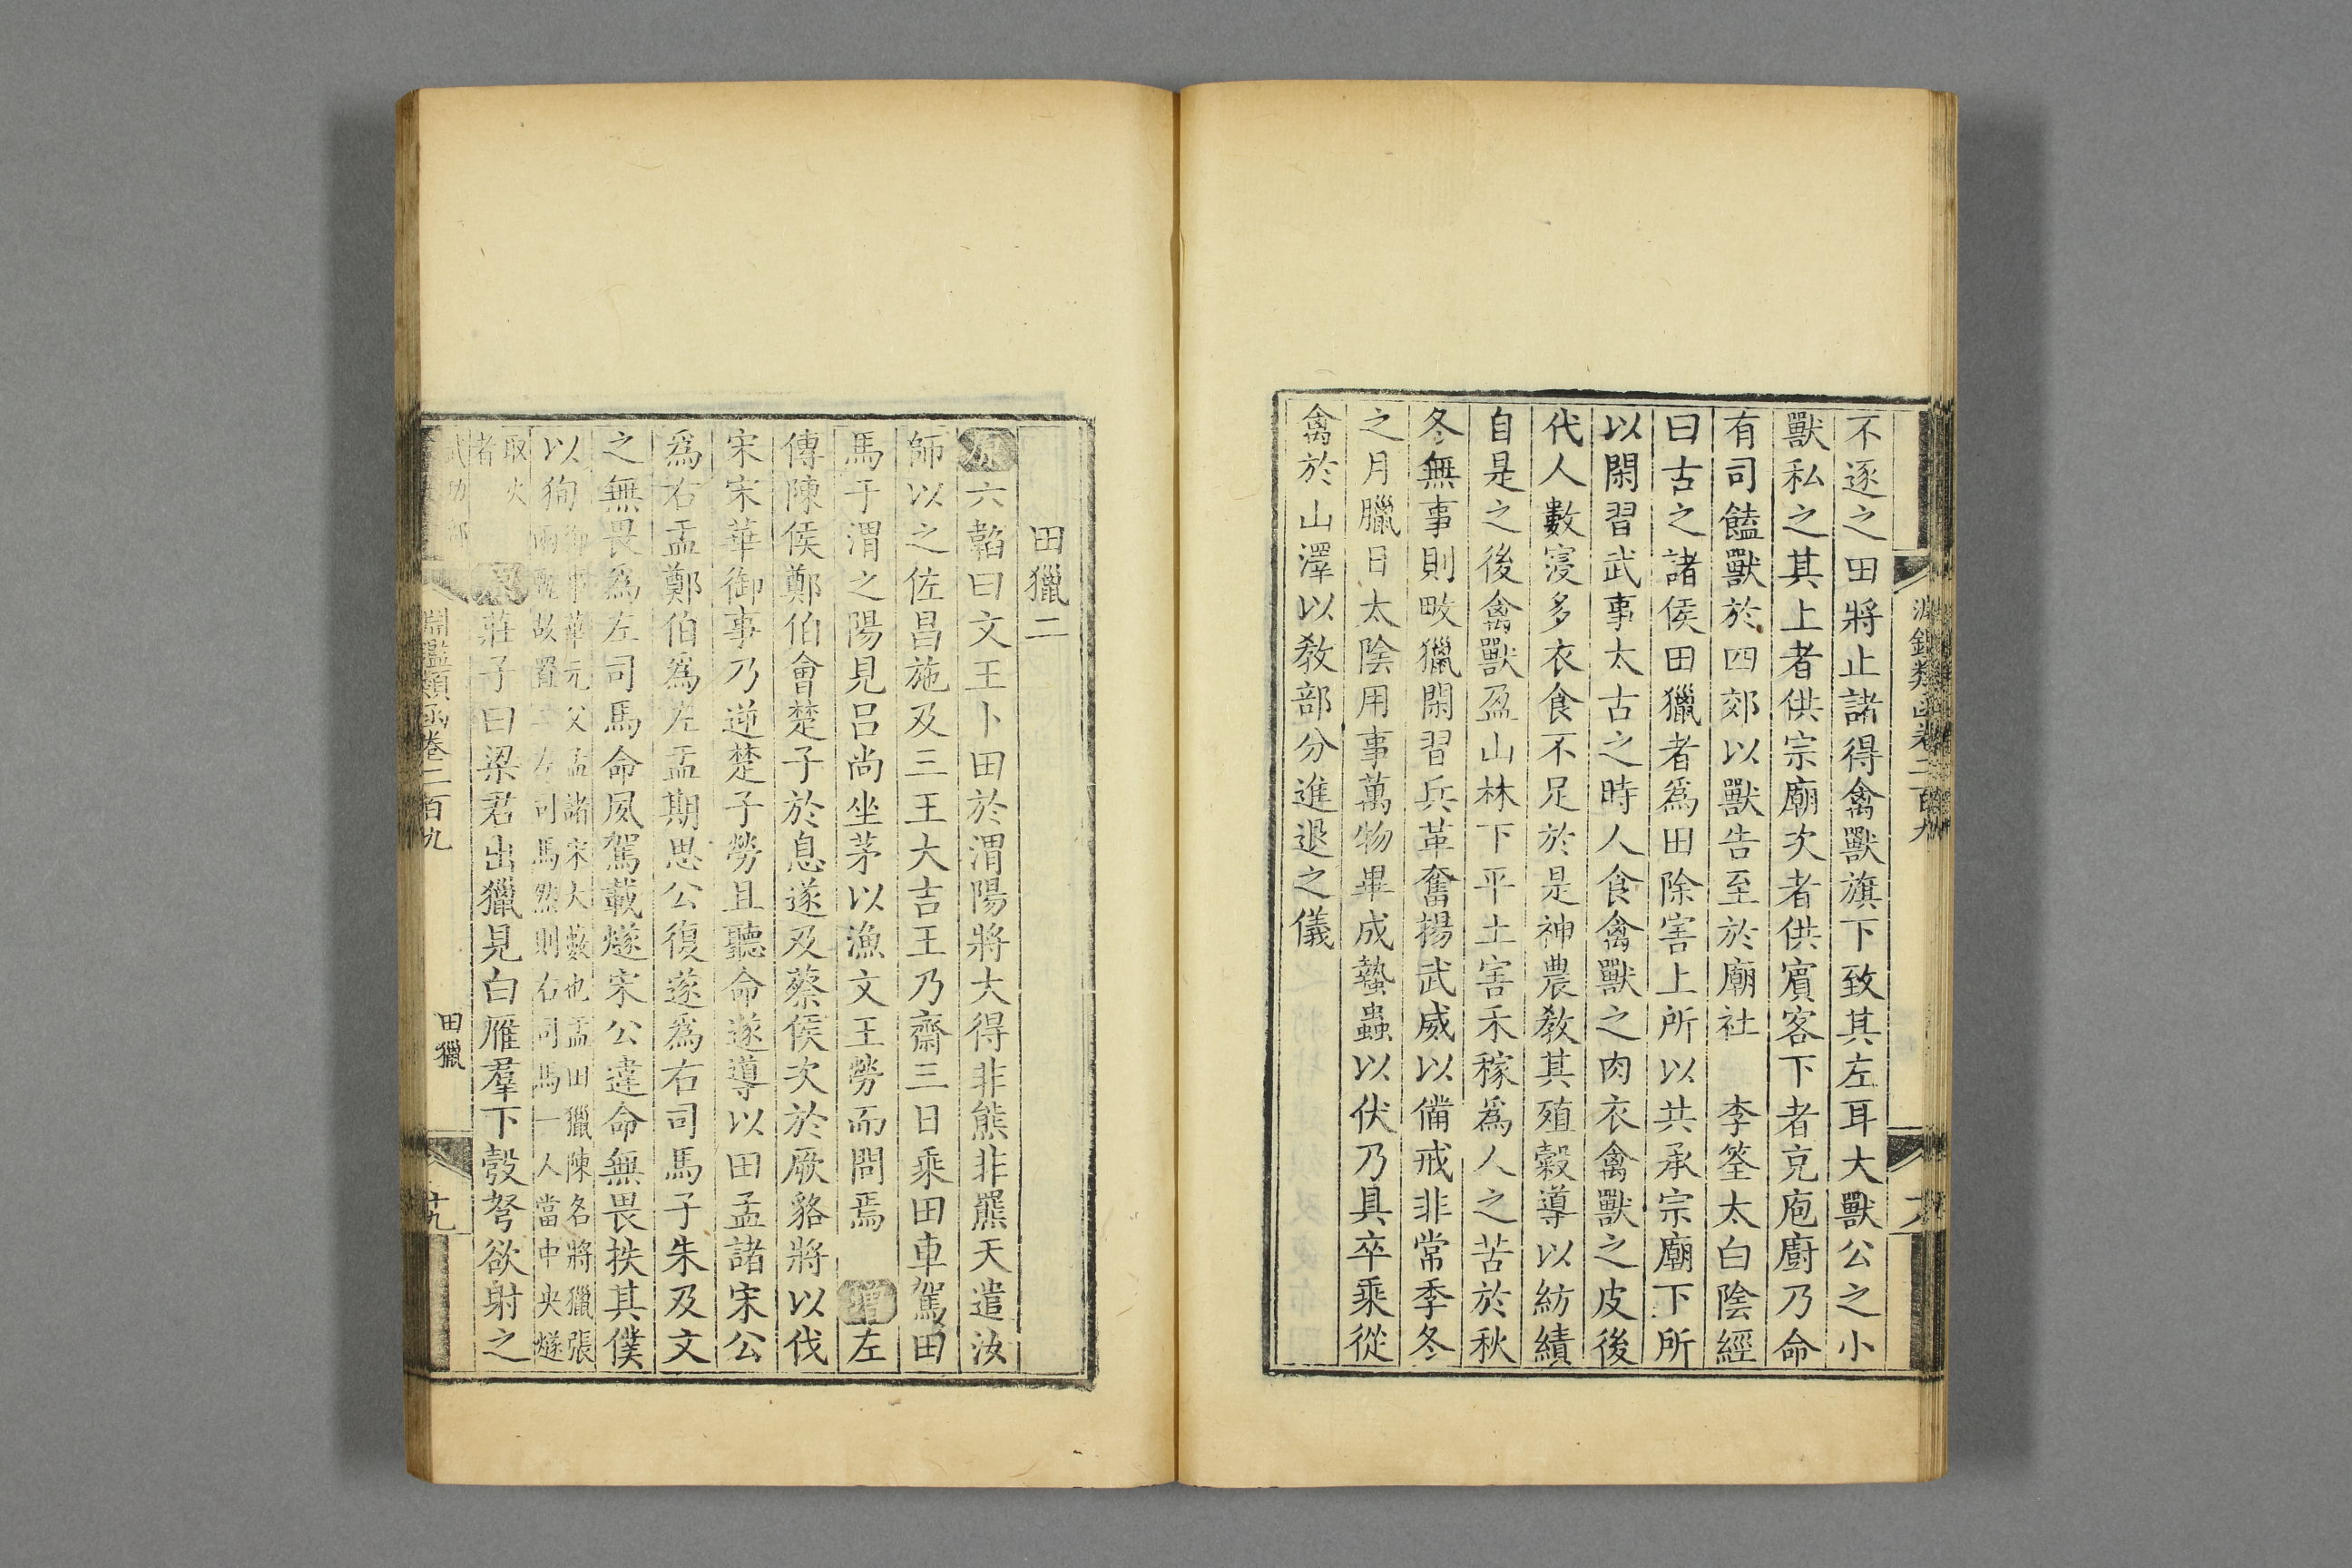 不逐之田將止諸得禽獸旗下致其左耳大獸公之小
獸私之其上者供宗廟次者供賔客下者克庖廚乃命
有司饁獸於四郊以獸告至於廟社　李筌太白陰經
曰古之諸侯田獵者爲田除害上所以共承宗廟下所
以閑習武事太古之時人食禽獸之肉衣禽獸之皮後
代人數寖多衣食不足於是神農敎其殖穀導以紡績
自是之後禽獸盈山林下平土害禾稼爲人之苦於秋
冬無事則畋獵閑習兵革奮揚武威以備戒非常季冬
之月臘日太陰用事萬物畢成蟄蟲以伏乃具卒乘從
禽於山澤以敎部分進退之儀
田獵二
原六韜曰文王卜田於渭陽將大得非熊非羆天遣汝
師以之佐昌施及三王大吉王乃齋三日乘田車駕田
馬于渭之陽見呂尚坐茅以漁文王勞而問焉　增左
傳陳侯鄭伯會楚子於息遂及蔡侯次於厥貉將以伐
宋宋華御事乃逆楚子勞且聽命遂導以田孟諸宋公
爲右盂鄭伯爲左盂期思公復遂爲右司馬子朱及文
之無畏爲左司馬命夙駕載燧宋公違命無畏抶其僕
以狥御事華元父孟諸宋大藪也盂田獵陳名將獵張
兩甄故置二左司馬然則右司馬一人當中央燧
取火
者
原莊子曰梁君出獵見白雁羣下彀弩欲射之
淵鑑類函卷二百九
田獵
十九